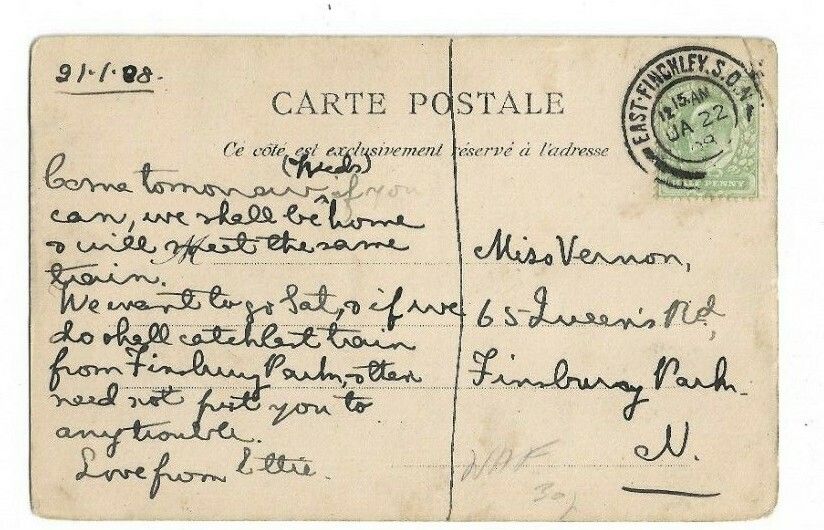 21.1.08.
EAST-FINCHLEY.S.O.N
12.15.AM
JA 22
09
CARTE POSTALE
Ce côté est exclusivement réservé à l'adresse
(Weds)
Come tomorrow if you
can, we shall be home
& will meet the same
train.
We want to go Sat, & if we
do shall catch last train
from Finsbury Park, & then
need not put you to
any trouble.
Love from Ettie.
Miss Vernon,
65 Queen's Rd,
Finsbury Park.
N.
PENNY